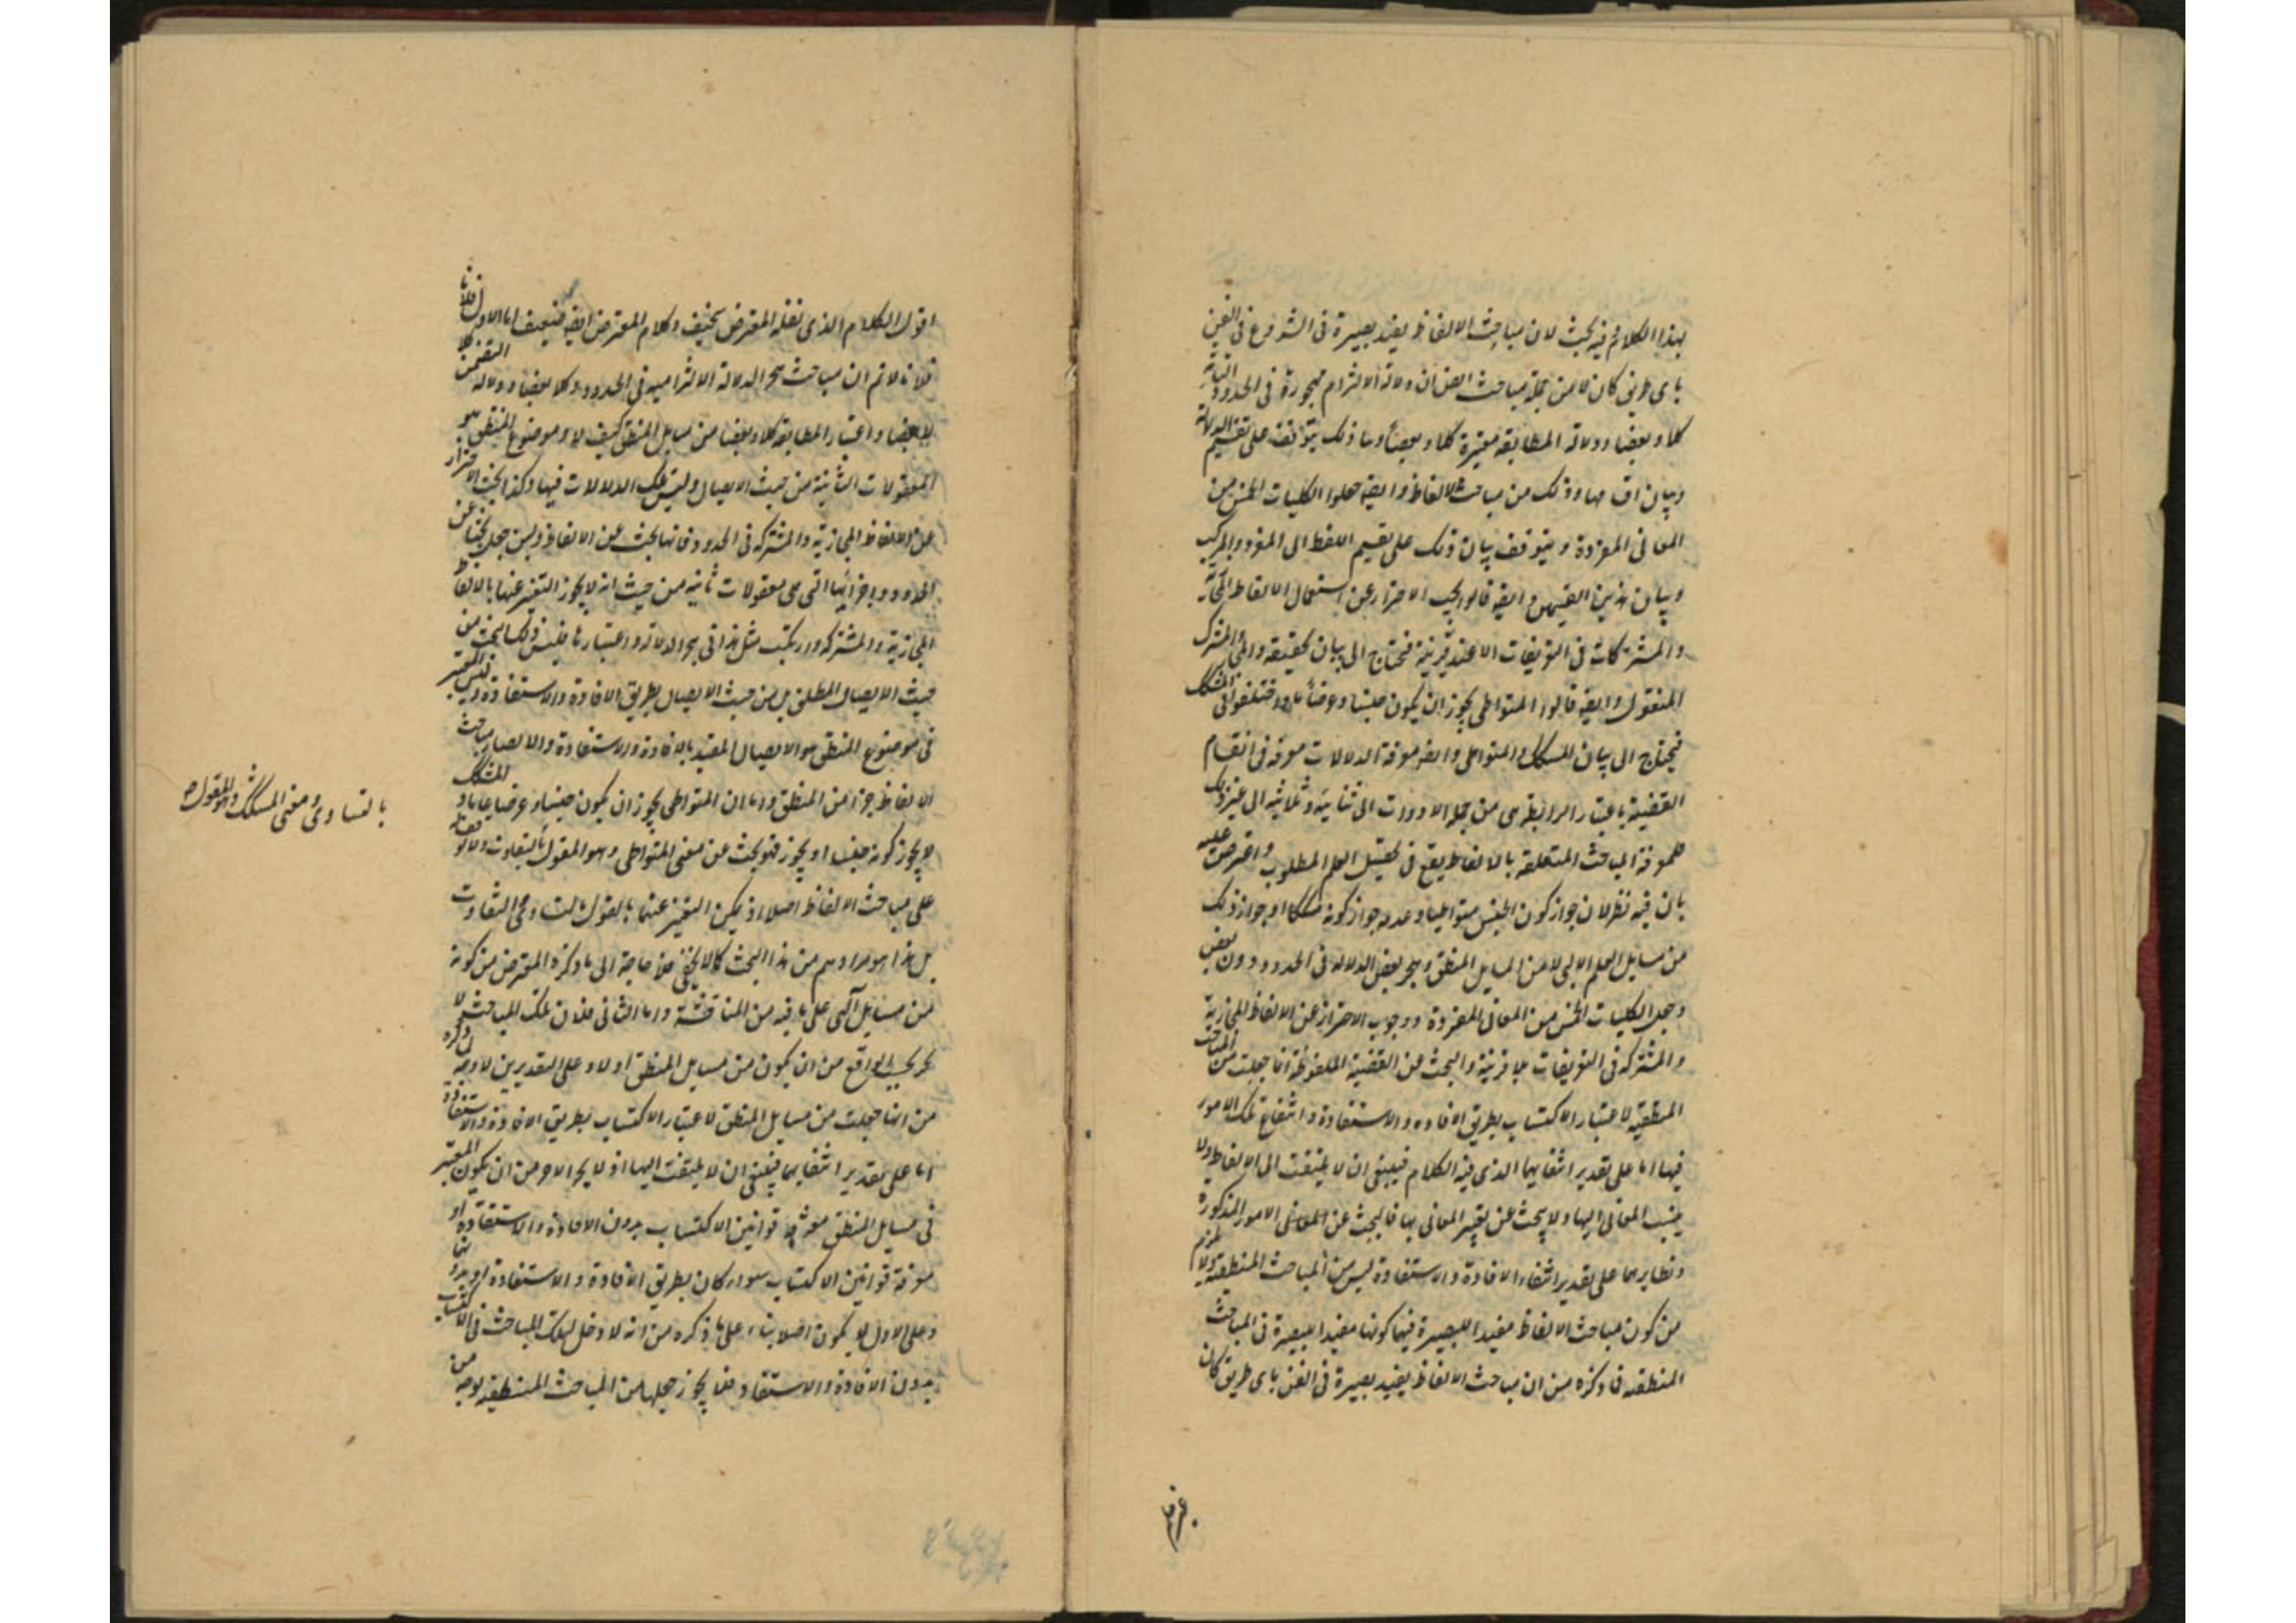 بهذا الكلام فيه بحث لان مباحث الالفاظ يفيد بصيرة فى الشروع فى الفن
باى طريق كان لا من جملة مباحث الفن ان دلالة الالتزام مهجورة فى الحدود
كلا وبعضا ودلالة المطابقة معتبرة كلا وبعضا وما ذلك يتوقف على تقسيم الدلالة
وبيان اقسامها وذلك من مباحث الالفاظ وايضه جعلوا الكليات الخمس من
المعانى المفردة ويتوقف بيان ذلك على تقسيم اللفظ الى المفرد والمركب
وبيان هذين القسمين وايضه قالوا يجب الاحتراز عن استعمال الالفاظ المجازية
والمشتركات فى التعريفات الا عند قرينة فتحتاج الى بيان الحقيقه والمجاز والمشترك
المنقول وايضه قالوا المتواطى يجوز ان يكون جنسا وعرضا عاما واختلفوا فى المشكك
فيحتاج الى بيان المشكك والمتواطى وايضه معرفة الدلالات معرفة فى انقسام
القضية باعتبار الرابطة هى من جملة الادوات الى ثنائية وثلاثية الى غير ذلك
فلمعرفة المباحث المتعلقه بالالفاظ يقع فى تحصيل العلم المطلوب واعترض عليه
بان فيه نظر لان جواز كون الجنس متواطيا وعدم جواز كونه مشككا او جواز ذلك
من مسايل العلم الالهى لا من مسايل المنطق وهجر بعض الدلاله فى الحدود دون بعض
وجعل الكليات الخمس من المعانى المفردة ووجوب الاحتراز عن الالفاظ المجازية
والمشتركه فى التعريفات بلا قرينة والبحث عن القضية الملفوظة انما جعلت من المباحث
المنطقيه لاعتبار الاكتساب بطريق الافاده والاستفادة وانتفاع تلك الامور
فيها اما على تقدير انتفايهما الذى فيه الكلام فينبغى ان لا يلتفت الى الالفاظ ولا
ينسب المعانى اليها ولا يبحث عن تعبير المعانى بها فالبحث عن الامور المذكورة
ونظايرهما على تقدير انتفاء الافادة والاستفادة ليس من المباحث المنطقية ولا يلزم
من كون مباحث الالفاظ مفيدا للبصيرة فيها كونها مفيدا للبصيرة فى المباحث
المنطقيه فما ذكره من ان مباحث الالفاظ يفيد بصيرة فى الفن باى طريق كان
اقول الكلام الذى نقله المعترض سخيف وكلام المعترض ايضه ضعيف اما الاول فلانا
فلانا لا نم ان مباحث هجر الدلالة الالتزاميه فى الحدود كلا وبعضا ودلالة التضمن كلا
لا بعضا واعتبار المطابقه كلا وبعضا من مسايل المنطق كيف لا وموضوع المنطق هو
المعقولات الثانية من حيث الايصال وليس تلك الدلالات فيها وكذا يجب الاحتراز
عن الالفاظ المجازية والمشتركه فى الحدود فانها بحث عن الالفاظ وليس جعل بحثا عن
الحدود واجزائها التى هى معقولات ثانية من حيث انه لا يجوز التعبير عنها بالالفاظ
المجازية والمشتركه وارتكب مثل هذا فى هجر الدلالة واعتبارها فليس ذلك البحث من
حيث الايصال المطلق بل من حيث الايصال بطريق الافادة والاستفادة وليس المعتبر
فى موضوع المنطق هو الايصال المقيد بالافادة والاستفادة والا لصار مباحث
الالفاظ جزأ من المنطق واما ان المتواطى يجوز ان يكون جنسا او عرضا عاما والمشكك
لا يجوز كونه جنسا او يجوز فهو بحث عن معنى المتواطى وهو المقول بالتفاوت
على مباحث الالفاظ اصلا اذ يمكن التعبير عنهما بالمقول بالتساوى والتفاوت
بل هذا هو مرادهم من هذا البحث كما لا يخفى فلا حاجة الى ما ذكره المعترض من كونه
من مسايل الهى على ما فيه من المناقشة واما الثانى فلان تلك المباحث لا
يخ بحسب الواقع من ان يكون من مسايل المنطق او لا وعلى التقديرين لا وجه لما ذكره
من انما جعلت من مسايل المنطق لاعتبار الاكتساب بطريق الافادة والاستفادة
اما على تقدير انتفايهما فينبغى ان لا يلتفت اليها اذ لا يخ الامر من ان يكون المعتبر
فى مسايل المنطق معرفة قوانين الاكتساب بدون الافادة والاستفادة او
معرفة قوانين الاكتساب سواء كان بطريق الافادة والاستفادة او بدونها
وعلى الاول لا يكون اصلا بناء على ما ذكره من انه لا دخل لتلك المباحث فى الاكتساب
بدون الافادة والاستفادة فلا يجوز جعلها من المباحث المنطقيه بوجه من
بالتساوى ومعنى المشكك وهو المقول